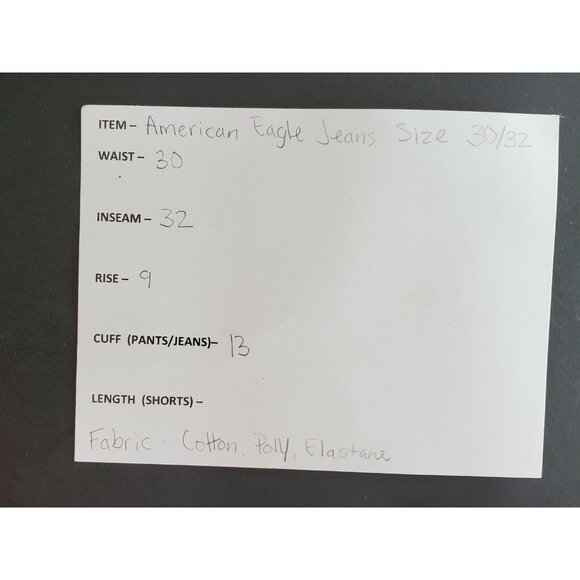 ITEM– American Eagle Jeans Size 30/32
WAIST– 30
INSEAM– 32
RISE– 9
CUFF (PANTS/JEANS)– 13
LENGTH (SHORTS) –
Fabric - Cotton, Poly, Elastane